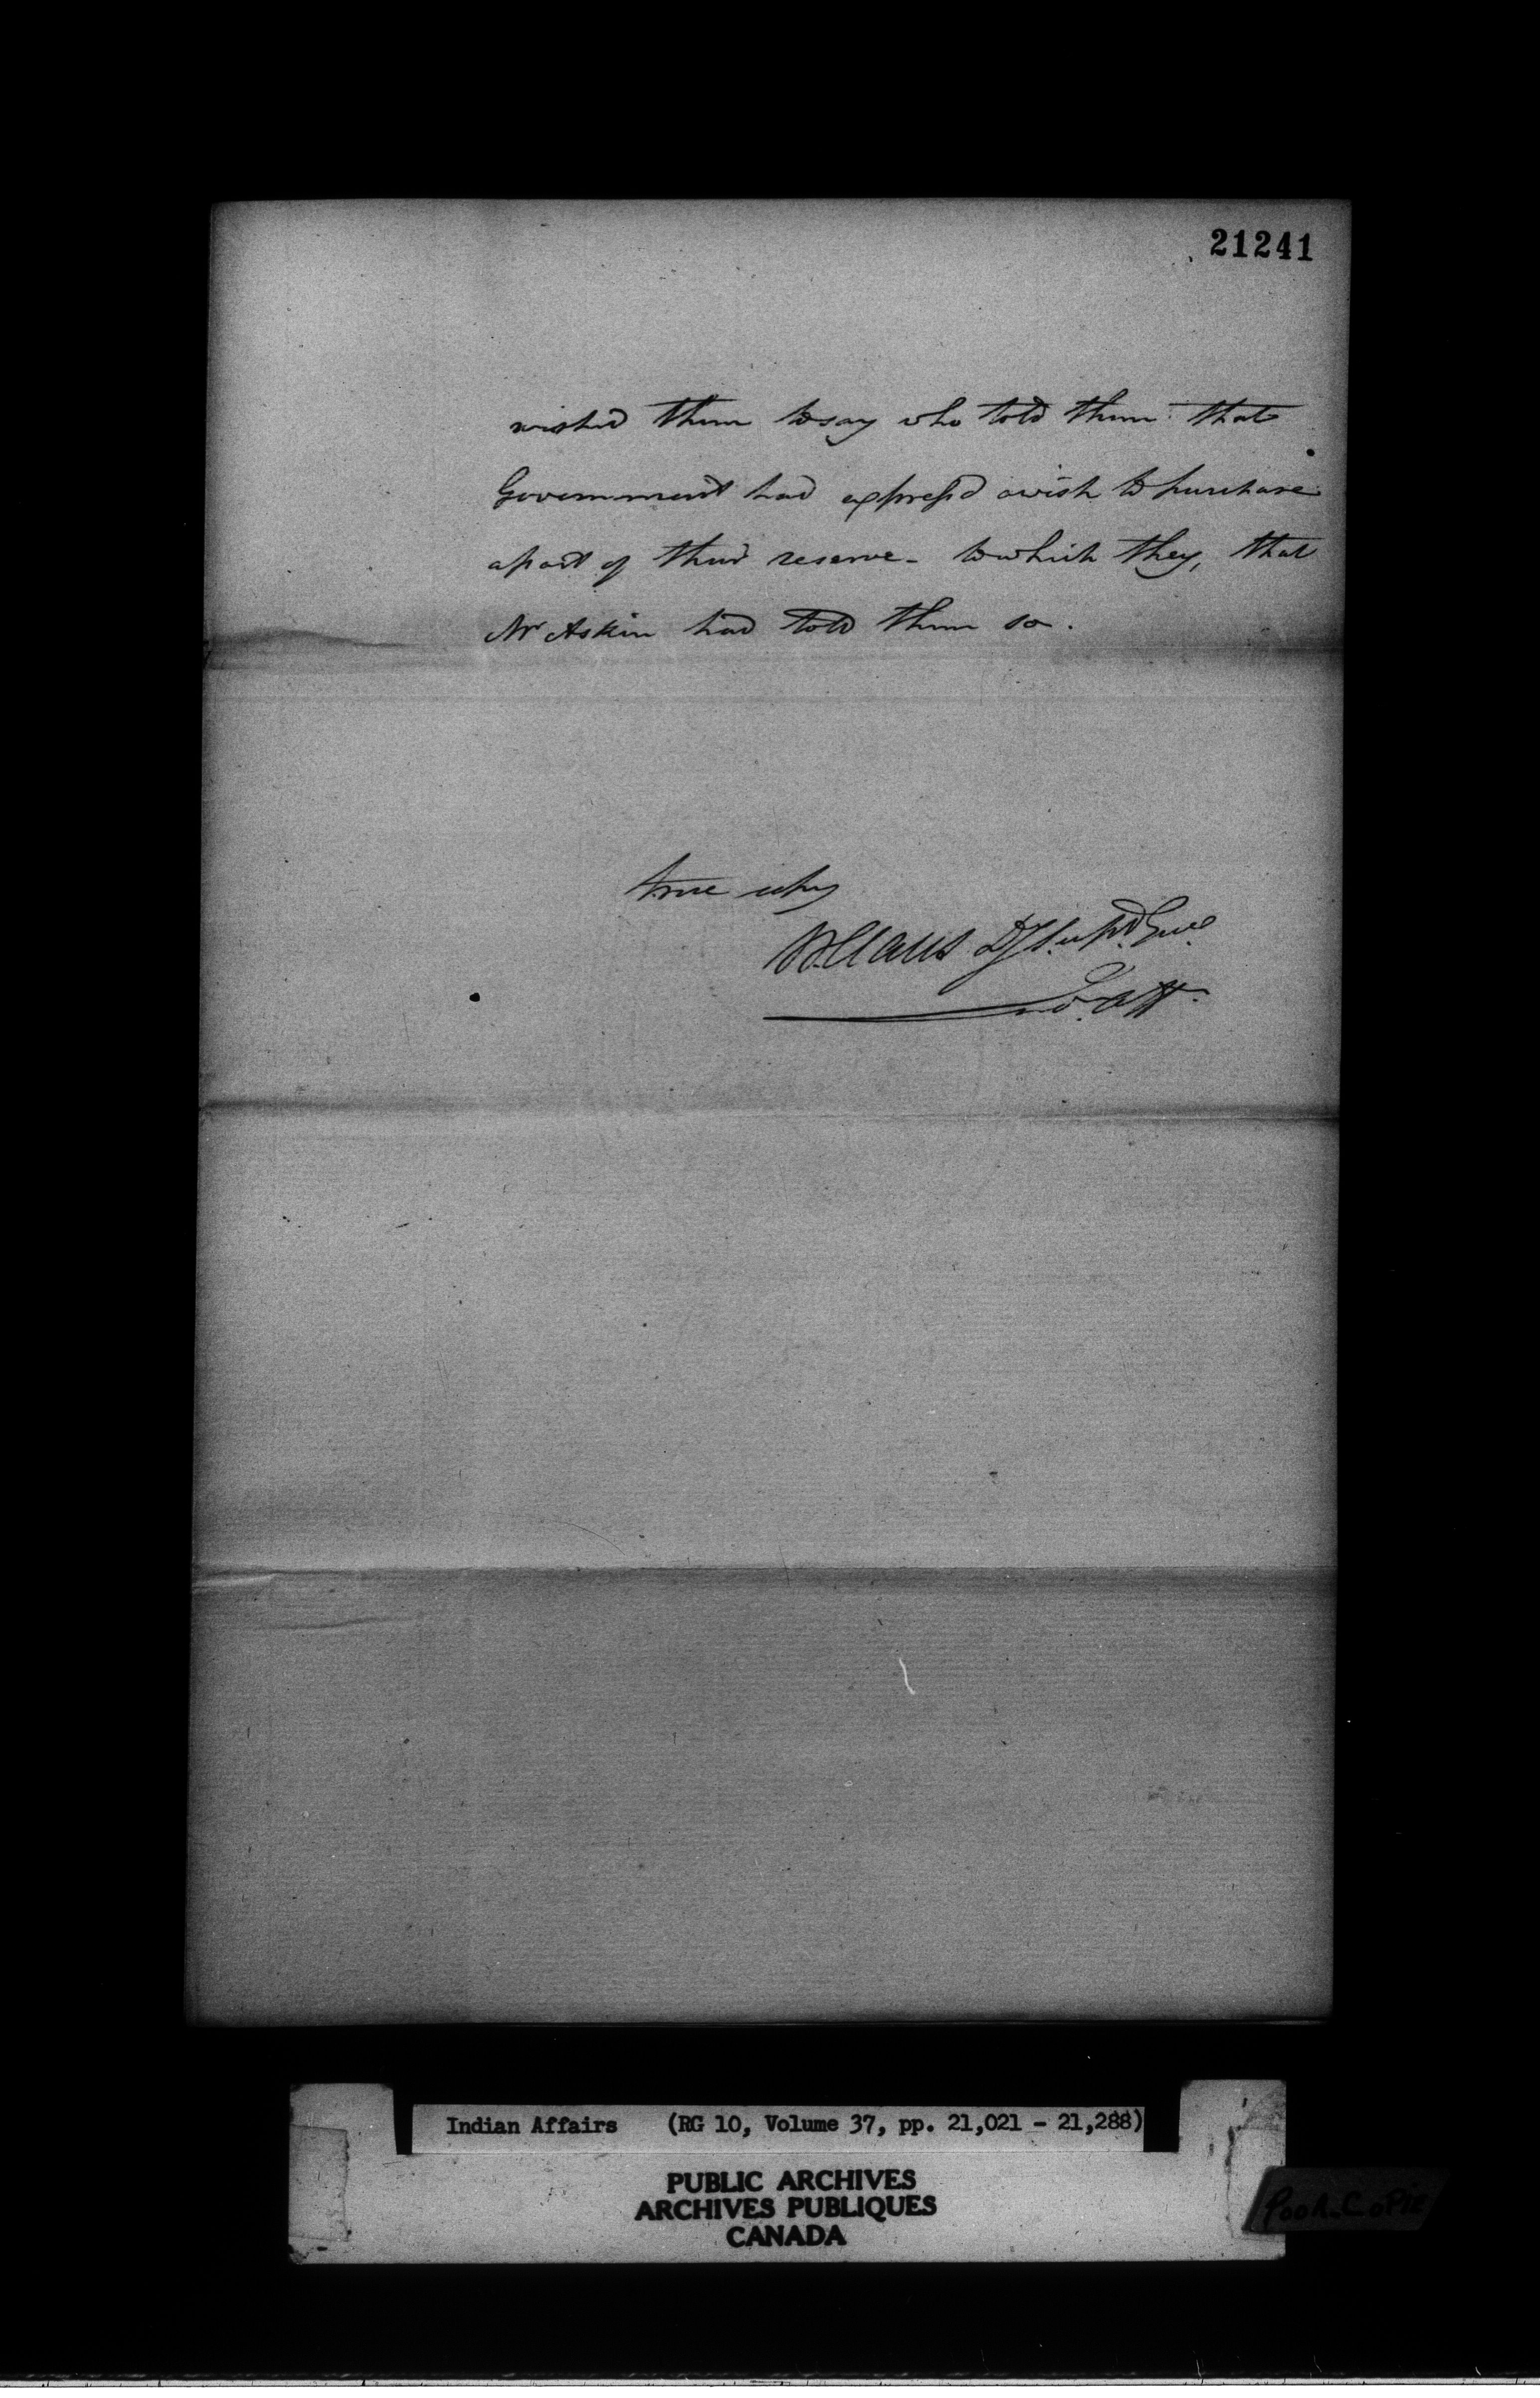 21241
wished them to say who told them that
Government had expressd a wish to purchase
a part of their reserve - to which they, that
Mr Askin had told them so.
true copy
W. Claus D.S. Supd. Genl.
I. Aff.
Indian Affairs (RG 10, Volume 37, pp. 21,021 - 21,288)
PUBLIC ARCHIVES
ARCHIVES PUBLIQUES
CANADA